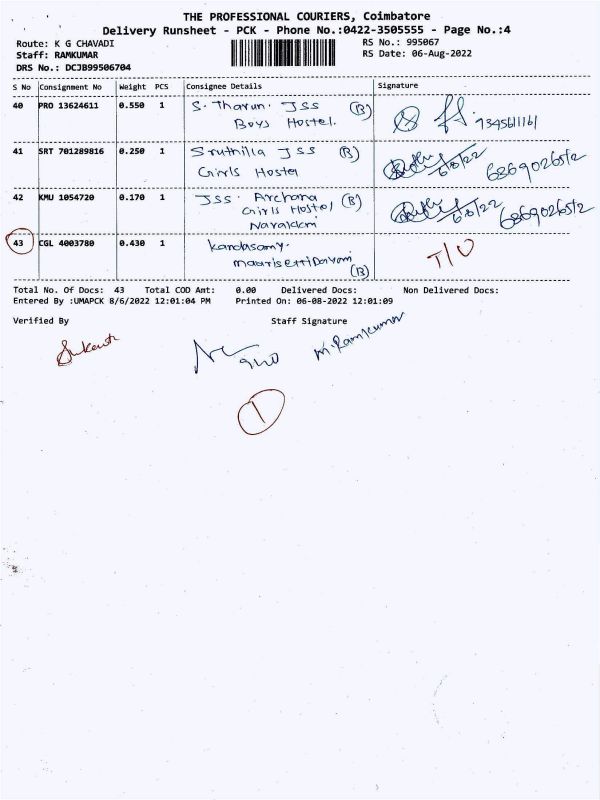 THE PROFESSIONAL COURIERS, Coimbatore
Delivery Runsheet - PCK - Phone No.:0422-3505555 - Page No.:4
Route: K G CHAVADI
RS No.: 995067
Staff: RAMKUMAR
RS Date: 06-Aug-2022
DRS No.: DCJB99506704
S No Consignment No Weight PCS Consignee Details Signature
40 PRO 13624611 0.550 1 S. Tharun. JSS (B)
Boys Hostel.
41 SRT 701289816 0.250 1 Sruthilla JSS (B)
Girls Hostel
6/8/22
42 KMU 1054720 0.170 1 JSS. Archana (B)
Girls Hostel
6/8/22
43 CGL 4003780 0.430 1 Kandasamy.
(B)
T/O
Total No. Of Docs: 43 Total COD Amt: 0.00 Delivered Docs: Non Delivered Docs:
Entered By :UMAPCK 8/6/2022 12:01:04 PM Printed On: 06-08-2022 12:01:09
Verified By Staff Signature
M. Ramkumar
1